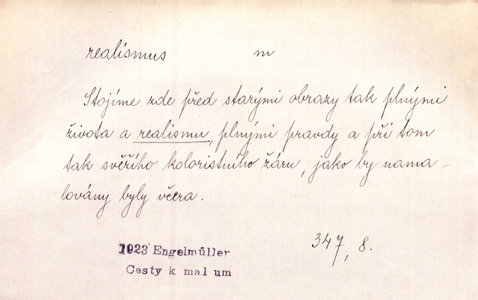 realismus m
Stojíme zde před starými obrazy tak plnými
života a realismu, plnými pravdy a při tom
tak svěžího koloristního žáru, jako by nama-
lovány byly včera.
347, 8.
1923 Engelmüller
Cesty k mal um